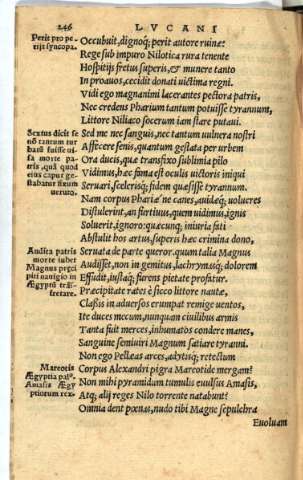 246 LVCANI
Perit pro pe-
rijt syncopa.
Occubuit, dignoq́; perit autore ruinæ?
Rege sub impuro Nilotica rura tenente
Hospitijs fretus superis, & munere tanto
In proauos, cecidit donati uictima regni.
Vidi ego magnanimi lacerantes pectora patris,
Nec credens Pharium tantum potuisse tyrannum,
Littore Niliaco socerum iam stare putaui.
Sextus dicit se
nõ tantum tur
batũ fuisse ui-
sa morte pa-
tris, quã quod
eius caput ge-
stabatur fixum
ueruto.
Sed me nec sanguis, nec tantum uulnera nostri
Affecere senis, quantum gestata per urbem
Ora ducis, quæ transfixo sublimia pilo
Vidimus, hæc fama est oculis uictoris iniqui
Seruari, scelerisq́; fidem quæsisse tyrannum.
Nam corpus Phariæ ne canes, auidæq́; uolucres
Distulerint, an furtiuus, quem uidimus, ignis
Soluerit, ignoro: quæcunq; iniuria fati
Abstulit hos artus, superis hæc crimina dono,
Audita patris
morte iubet
Magnus præci
piti nauigio in
Ægyptũ trã-
fretare.
Seruata de parte queror. quum talia Magnus
Audisset, non in gemitus, lachrymasq́; dolorem
Effudit, iustaq́; furens pietate profatur.
Præcipitate rates è sicco littore nautæ,
Classis in aduersos erumpat remige uentos,
Ite duces mecum, nunquam ciuilibus armis
Tanta fuit merces, inhumatos condere manes,
Sanguine semiuiri Magnum satiare tyranni.
Non ego Pellæas arces, adytisq́; retectum
Mareotis
Ægyptia pal⁹.
Amasis Ægy
ptiorum rex.
Corpus Alexandri pigra Mareotide mergam?
Non mihi pyramidum tumulis euulsus Amasis,
Atq; alij reges Nilo torrente natabunt?
Omnia dent pœnas, nudo tibi Magne sepulchra
Euoluam